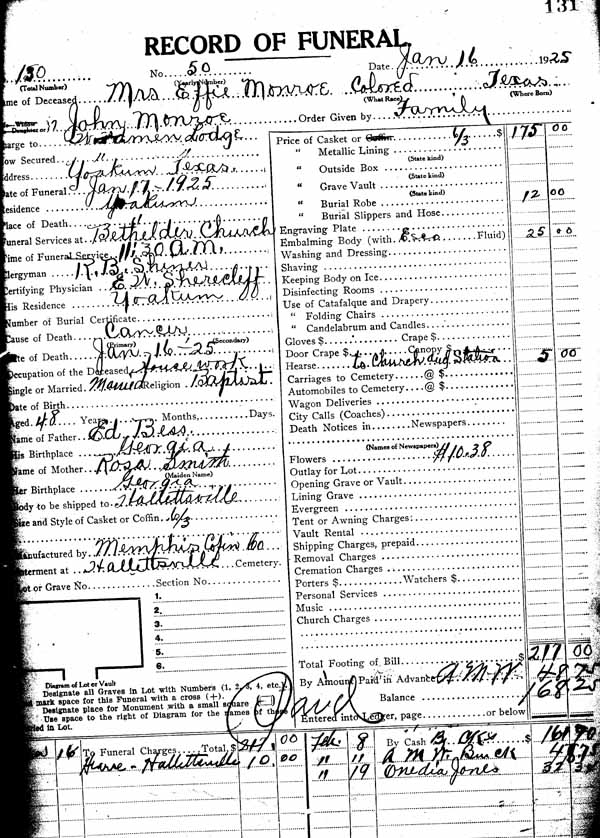 131
RECORD OF FUNERAL
150 No. 50 Date Jan 16 1925
(Total Number) (Yearly Number)
me of Deceased Mrs Effie Monroe Colored Texas
(What Race) (Where Born)
Widow
Daughter of John Monroe Order Given by Family
harge to Woodmen Lodge
ow Secured " "
ddress Yoakum Texas.
ate of Funeral Jan 17 - 1925
esidence Yoakum
lace of Death "
uneral Services at Church
ime of Funeral Service 11:30 A.M.
lergyman R. B.
ertifying Physician E. W.
His Residence Yoakum
Number of Burial Certificate
Cause of Death Cancer
(Primary) (Secondary)
ate of Death Jan - 16 - 25
Occupation of the Deceased House work
Single or Married Married Religion Baptist
Date of Birth
Aged 48 Years Months, Days.
Name of Father Ed. Bess
His Birthplace Georgia
Name of Mother Rosa Smith
(Maiden Name)
Her Birthplace Georgia
Body to be shipped to Hallettsville
Size and Style of Casket or Coffin 6/3
Manufactured by Memphis Cofin Co
nterment at Hallettsville Cemetery.
Lot or Grave No. Section No.
1.
2.
3.
4.
5.
6.
Diagram of Lot or Vault
Designate all Graves in Lot with Numbers (1, 2, 3, 4, etc.),
mark space for this Funeral with a cross (+).
Designate place for Monument with a small square
Use space to the right of Diagram for the names of those
ried in Lot.
Price of Casket or Coffin 6/3 $ 175 00
" Metallic Lining
(State kind)
" Outside Box
(State kind)
" Grave Vault
(State kind)
" Burial Robe 12 00
(State kind)
" Burial Slippers and Hose
Engraving Plate
Embalming Body (with Esco Fluid) 25 00
Washing and Dressing
Shaving
Keeping Body on Ice
Disinfecting Rooms
Use of Catafalque and Drapery
" Folding Chairs
" Candelabrum and Candles
Gloves $ Crape $
Door Crape $ Canopy $
Hearse to Church and Station 5 00
Carriages to Cemetery @ $
Automobiles to Cemetery @ $
Wagon Deliveries
City Calls (Coaches)
Death Notices in Newspapers
(Names of Newspapers)
Flowers $10.38
Outlay for Lot
Opening Grave or Vault
Lining Grave
Evergreen
Tent or Awning Charges
Vault Rental
Shipping Charges, prepaid
Removal Charges
Cremation Charges
Porters $ Watchers $
Personal Services
Music
Church Charges
Total Footing of Bill $ 217 00
By Amount Paid in Advance A. M. W. 48 75
Balance 168 25
Entered into Ledger, page or below
Paid
16 To Funeral Charges Total, $ 217 .00 Feb. 8 By Cash $ 161 90
Hearse - Hallettsville 10.00 " " A M W Buick 48 75
" 19 Onedia Jones